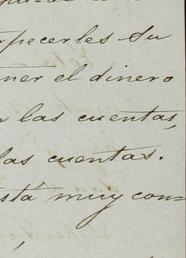 rpecerles su
ner el dinero
las cuentas,
las cuentas.
stá muy con